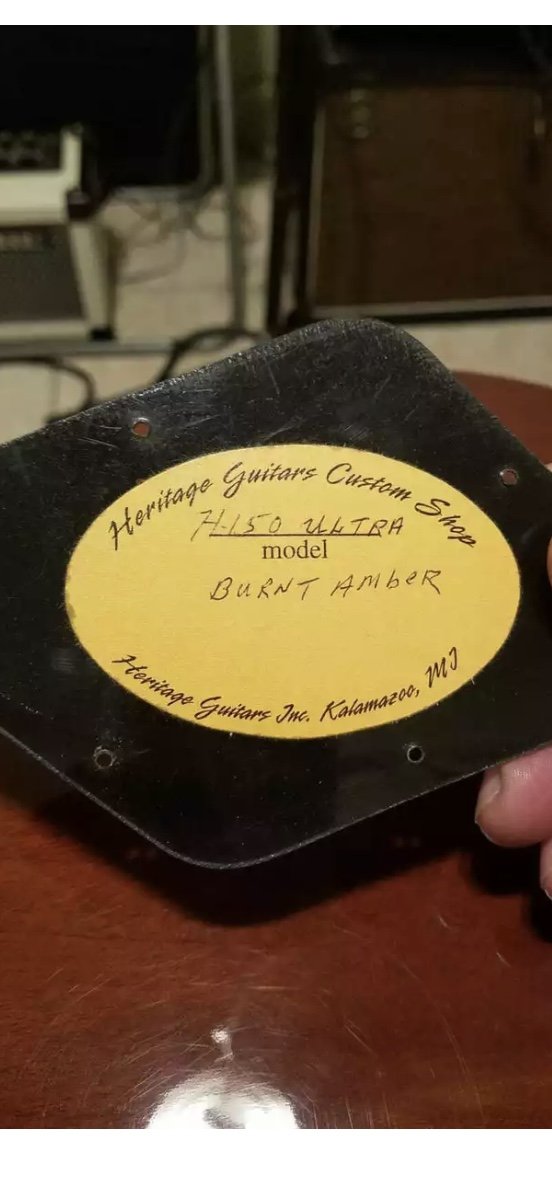 Heritage Guitars Custom Shop
H-150 ULTRA
model
BURNT AMbER
Heritage Guitars Inc. Kalamazoo, MI